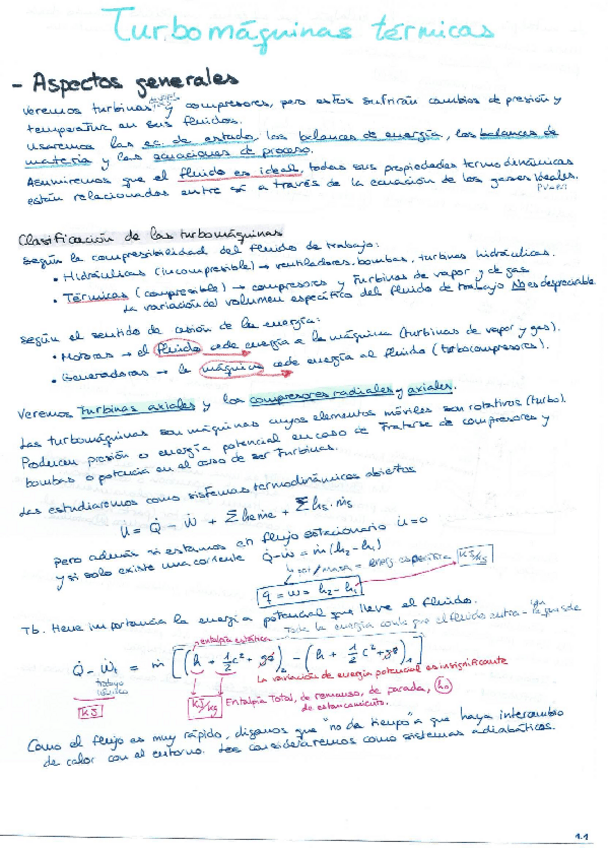 Turbomáquinas térmicas
- Aspectos generales
Veremos turbinas y compresores, pero estos sufrirán cambios de presión y
temperatura en sus fluidos.
Usaremos las ec. de estado, los balances de energía, los balances de
materia y las ecuaciones de proceso.
Asumiremos que el fluido es ideal, todas sus propiedades termodinámicas
están relacionadas entre sí a través de la ecuación de los gases ideales.
Clasificación de las turbomáquinas
Según la compresibilidad del fluido de trabajo:
• Hidráulicas (incompresible) → ventiladores, bombas, turbinas hidráulicas.
• Térmicas (compresible) → compresores y turbinas de vapor y de gas
La variación del volumen específico del fluido de trabajo NO es despreciable
Según el sentido de cesión de la energía:
• Motoras → el fluido cede energía a la máquina (turbinas de vapor y gas).
• Generadoras → la máquina cede energía al fluido (turbocompresores).
Veremos turbinas axiales y los compresores radiales y axiales.
Las turbomáquinas son máquinas cuyos elementos móviles son rotativos (turbo).
Producen presión o energía potencial en caso de tratarse de compresores y
bombas o potencia en el caso de ser turbinas.
Las estudiaremos como sistemas termodinámicos abiertos
U = Q̇ - Ẇ + Σ he ṁe + Σ hs · ṁs
pero además si estamos en flujo estacionario U̇ = 0
y si solo existe una corriente Q̇ - Ẇ = ṁ (h₂ - h₁)
energ específica kJ/kg
q = w = h₂ - h₁
Tb. tiene importancia la energía potencial que lleve el fluido.
Toda la energía
entalpía estática
Q̇ - Ẇt = ṁ [(h + 1/2 c² + gz)₂ - (h + 1/2 c² + gz)₁]
trabajo
técnico
La variación de energía potencial es insignificante
kJ
kJ/kg
Entalpía Total, de remanso, de parada, h₀
de estancamiento.
Como el flujo es muy rápido, digamos que "no da tiempo" a que haya intercambio
de calor con el entorno. Los consideraremos como sistemas adiabáticos.
1.1